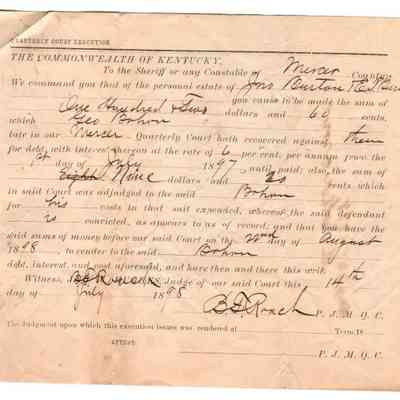 QUARTERLY COURT EXECUTION
THE COMMONWEALTH OF KENTUCKY,
To the Sheriff or any Constable of Mercer County:
We command you that of the personal estate of Jno Burton
you cause to be made the sum of
One Hundred & Two dollars and 60 cents,
which Geo Bohon
late in our Mercer Quarterly Court hath recovered against them
for debt, with interest thereon at the rate of 6 per cent. per annum from the
1st day of July 1897 until paid; also, the sum of
Eight Nine dollars and 20 cents which
in said Court was adjudged to the said Bohon
for his costs in that suit expended, whereof the said defendant
is convicted, as appears to us of record; and that you have the
said sums of money before our said Court on the 22nd day of August
1898, to render to the said Bohon
debt, interest and cost aforesaid, and have then and there this writ.
Witness, B F Roach Judge of our said Court this 14th
day of July 1898
B F Roach P. J. M. Q. C.
The Judgment upon which this execution issues was rendered at Term 18
ATTEST:
P. J. M. Q. C.